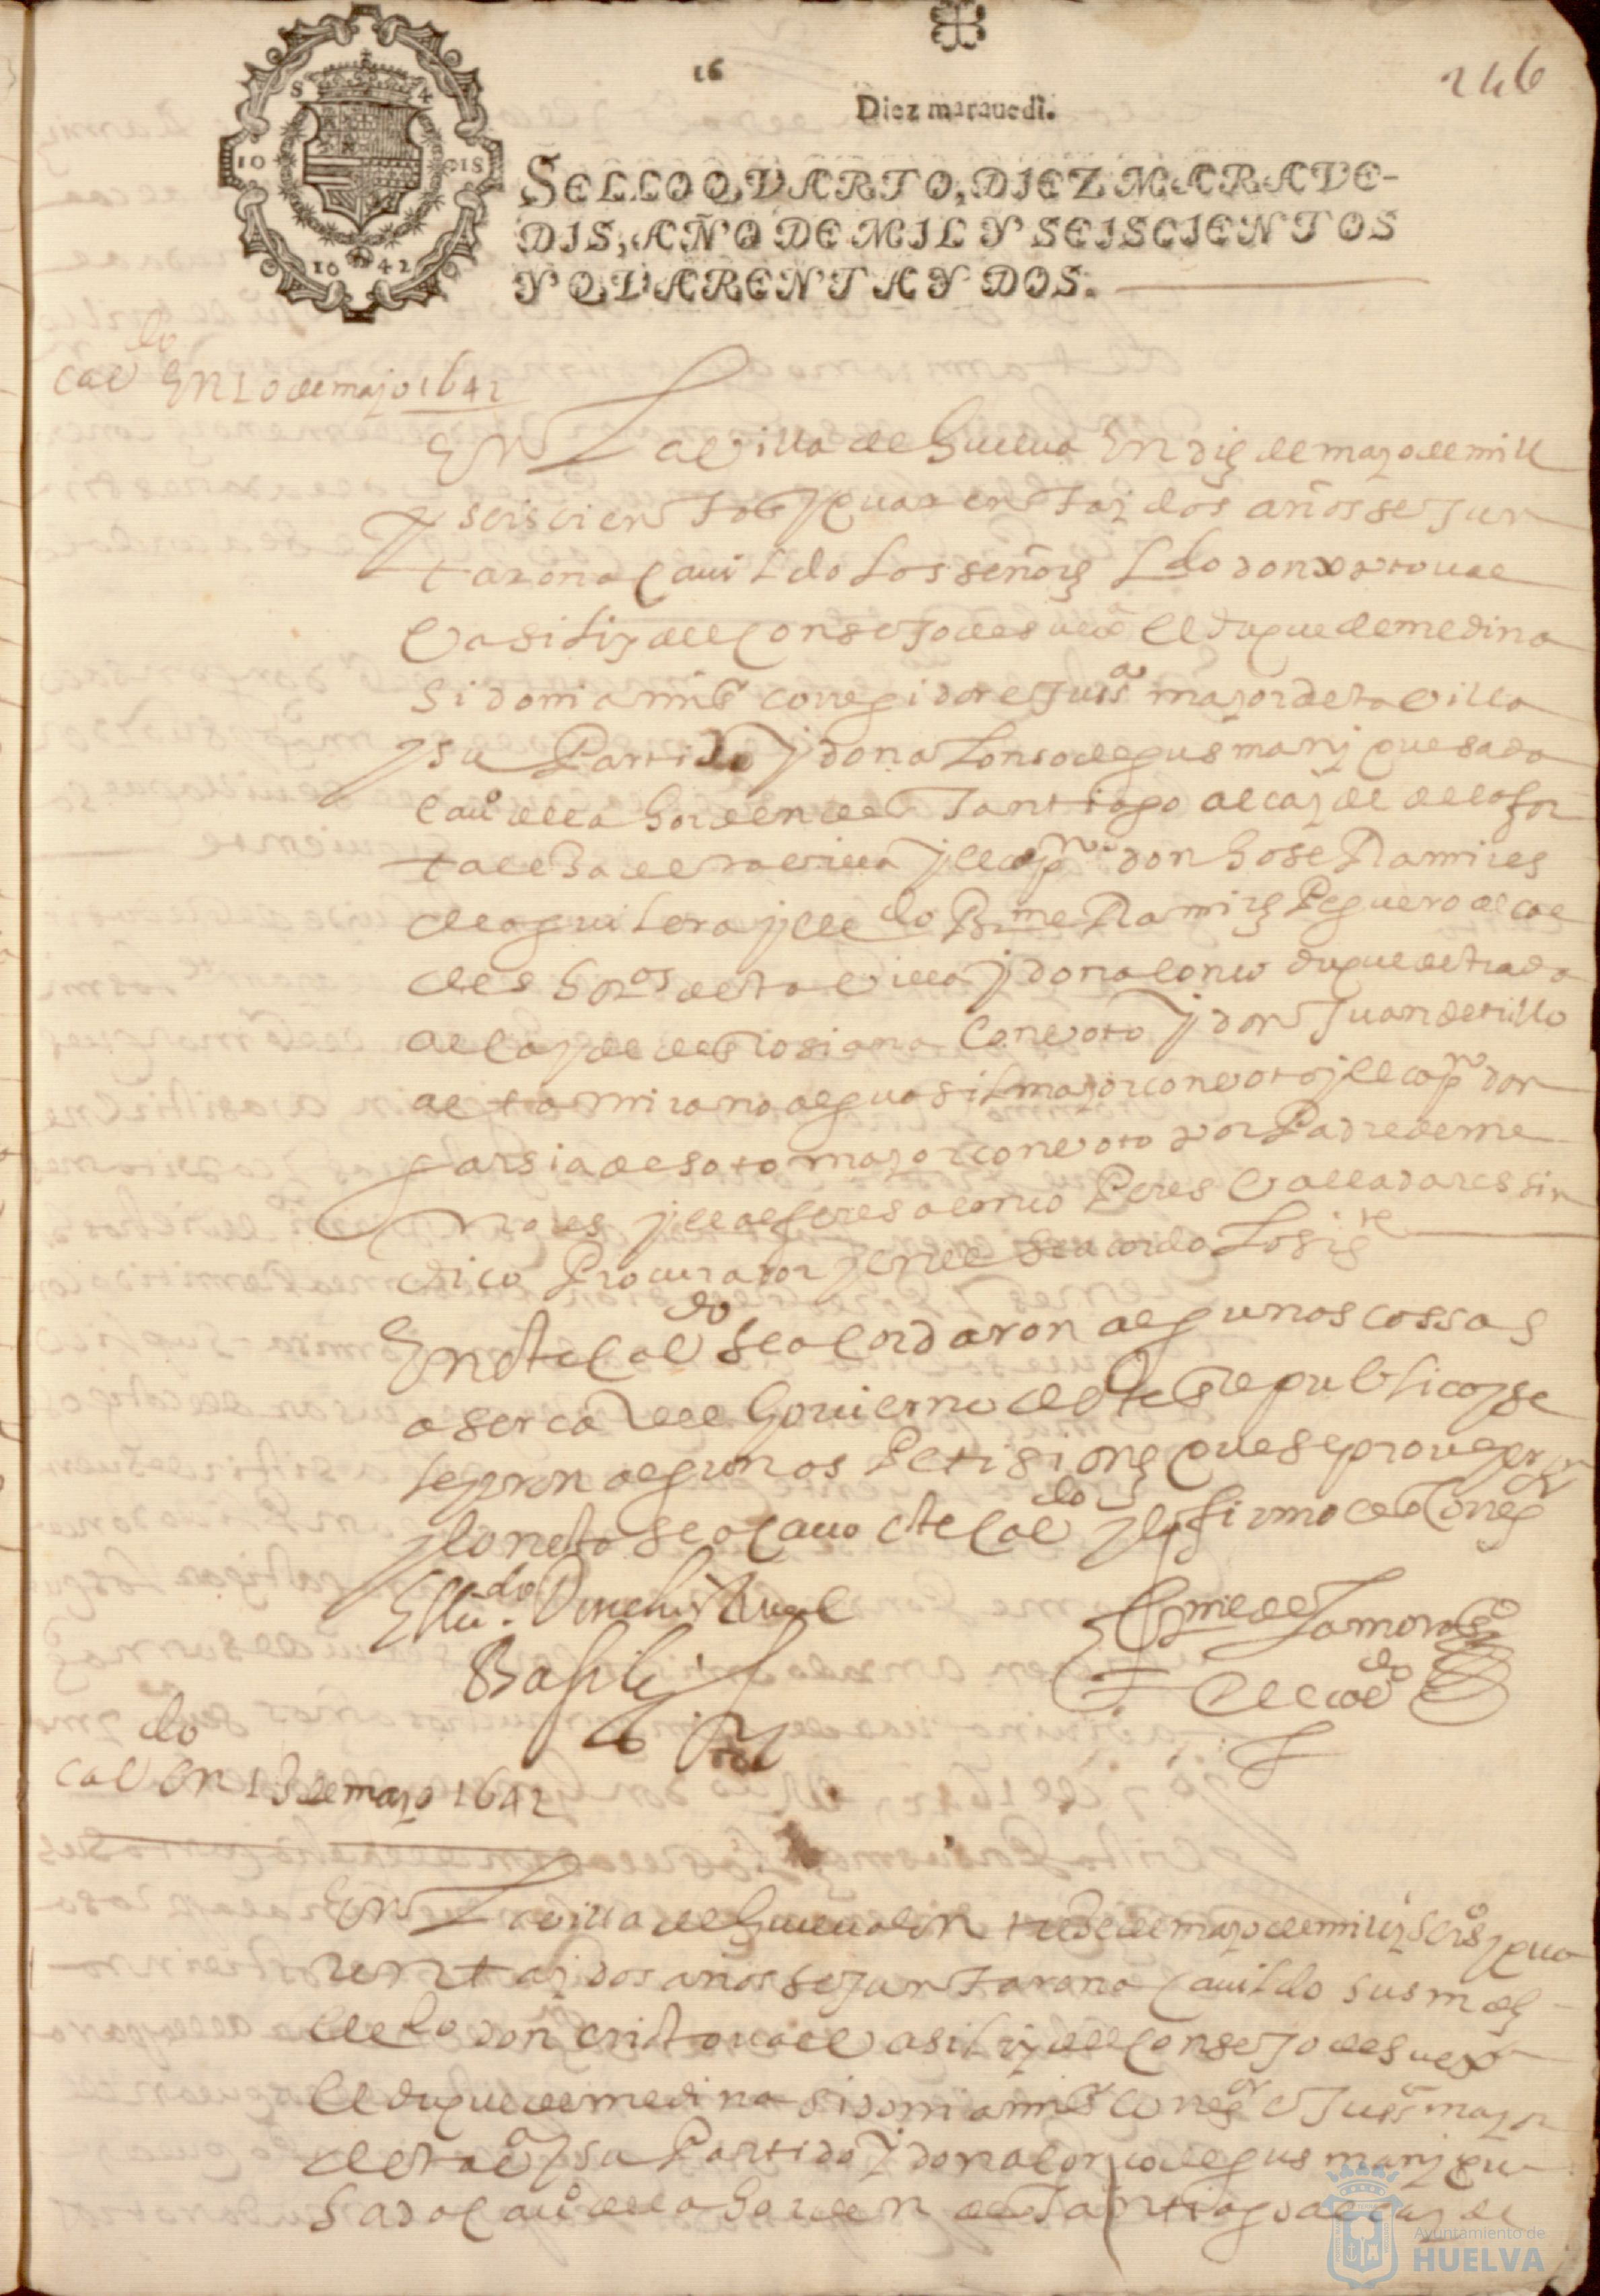 16
246
Diez marauedi.
S 4
10 GIS
1642
SELLO QVARTO, DIEZ MARAVE-
DIS, AÑO DE MIL Y SEISCIENTOS
Y QVARENTA Y DOS.
cavdo En 10 de mayo 1642
En La villa de Guelva En dies de mayo de mill
y seiscientos y quarenta y dos años se Jun
taron a Cavildo Los señores Ldo don xptoval
Vasilis del Consejo de su exa el duque de medina
Sidonia mi sr corregidor e Justa mayor desta villa
y su Partido y don alonso de gusman y quesada
Cavo de la horden de Santiago alcayde de la for
talesa desta villa y el capn don Jose Ramires
de aguilera y el ldo Bme Ramires Peguero alcal
des hordros desta villa y don alonso duque destrada
alcayde de Rosiana Con voto y don Juan de trillo
altamirano alguasil mayor con voto y el capn don
garsia de soto mayor con voto por Padre de me
nores y el alferes alonso Peres Valladares sin
dico Procurador Jenel se acordo Lo sigte
En este Cavdo se acordaron algunas cossas
aserca del Govierno de esta Republica y se
leyeron algunas Petisiones que se proveyeron
y con esto se acavo este Cavdo y lo firmo el Corregr
El licdo Don christoval
Basilis
Gme de Zamora
escro de cavdo
cavdo En 13 de mayo 1642
En La villa de Guelva En trese de mayo de mill y seiso y qua
renta y dos años se Juntaron a Cavildo sus mds
el ldo don cristoval Vasilis del Consejo de su exa
El duque de medina sidonia mi sr corregr e Justa mayor
desta va y su Partido y don alonso de gusman y que
sada Cavo de la horden de Santiago alcayde
Ayuntamiento de
HUELVA